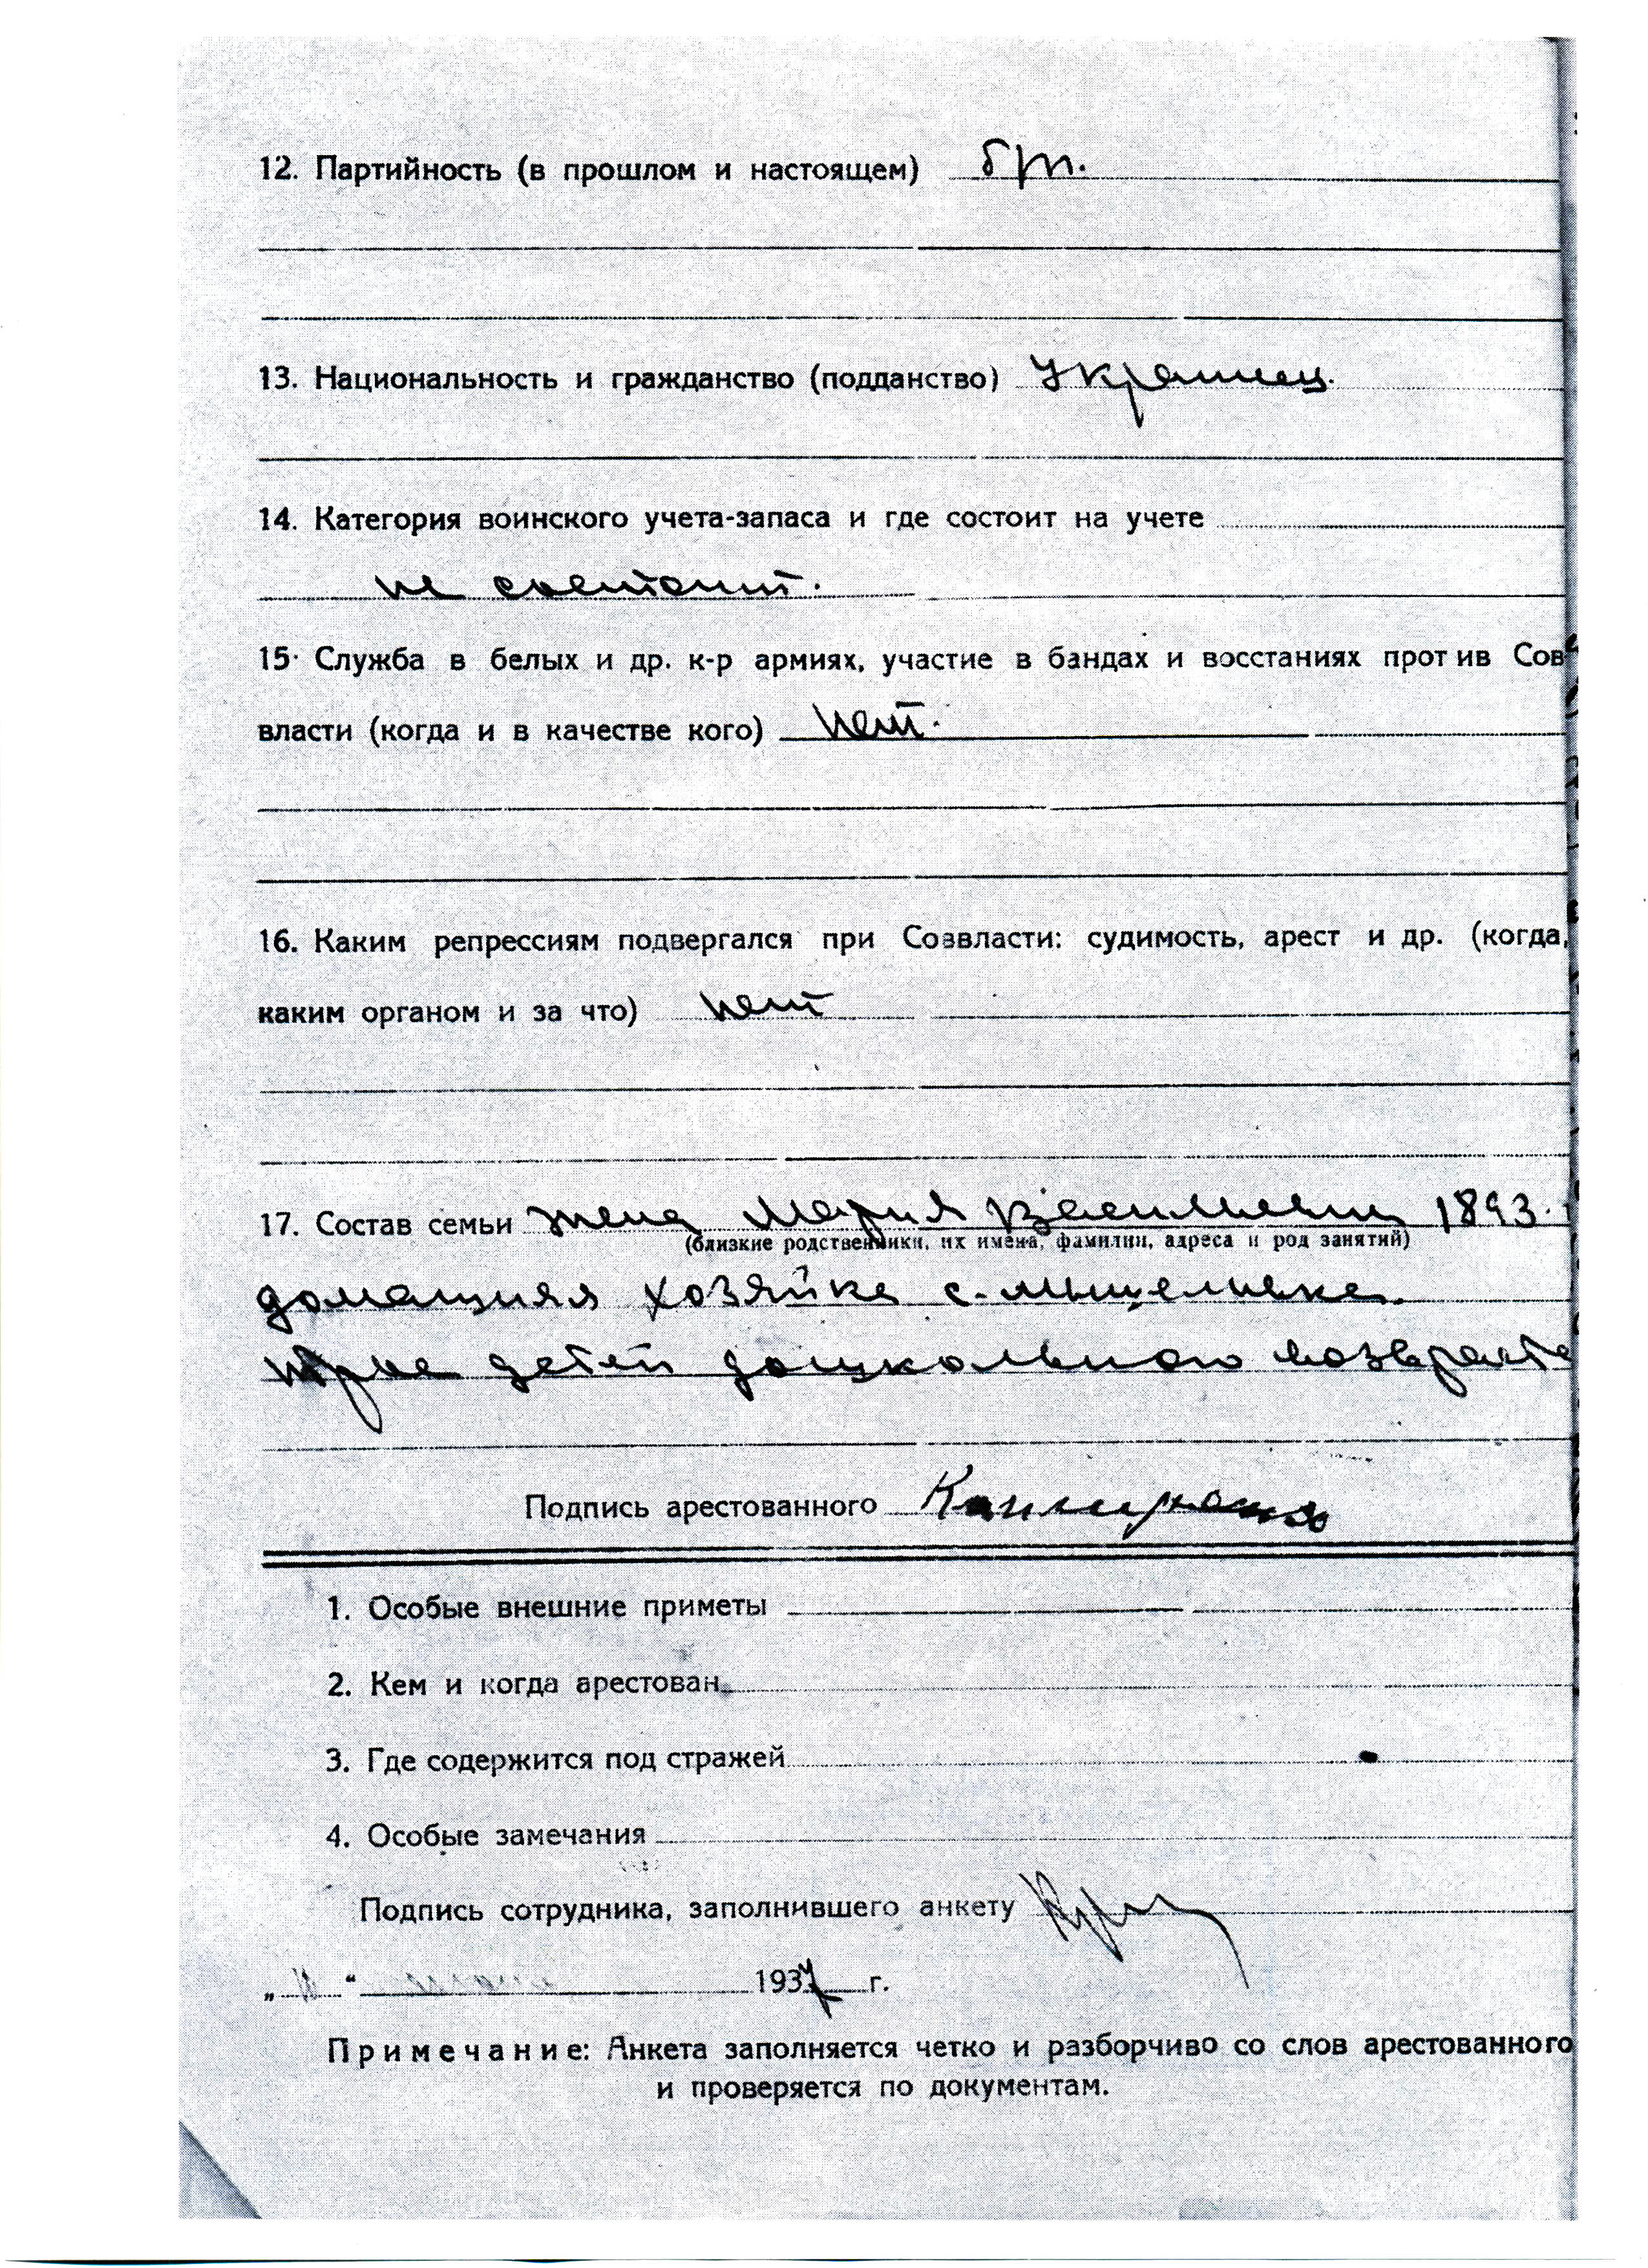 12. Партийность (в прошлом и настоящем) б/п.
13. Национальность и гражданство (подданство) Украинец.
14. Категория воинского учета-запаса и где состоит на учете
не состоит.
15. Служба в белых и др. к-р армиях, участие в бандах и восстаниях против Сов
власти (когда и в качестве кого) нет.
16. Каким репрессиям подвергался при Соввласти: судимость, арест и др. (когда,
каким органом и за что) нет
17. Состав семьи жена Мария Васильевна 1893.
(близкие родственники, их имена, фамилии, адреса и род занятий)
домашняя хозяйка с.
трое детей дошкольного возраста
Подпись арестованного
1. Особые внешние приметы
2. Кем и когда арестован
3. Где содержится под стражей
4. Особые замечания
Подпись сотрудника, заполнившего анкету
„ “ 1937 г.
Примечание: Анкета заполняется четко и разборчиво со слов арестованного
и проверяется по документам.